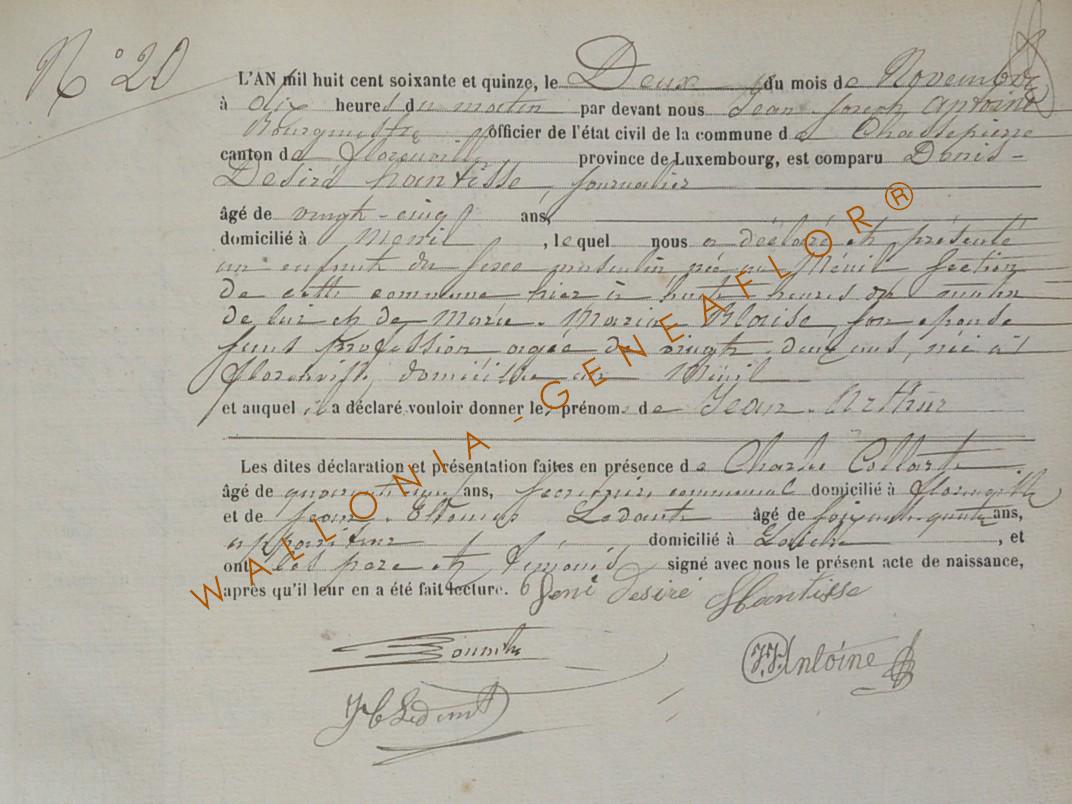 N° 20
L'AN mil huit cent soixante et quinze, le Deux du mois de Novembre
à dix heures du matin par devant nous Jean Joseph Antoine
Bourgmestre officier de l'état civil de la commune de Chassepierre
canton de Florenville province de Luxembourg, est comparu Denis-
Desiré hantisse, journalier
âgé de vingt-cinq ans,
domicilié à Menil, lequel nous a déclaré et présenté
un enfant du sexe masculin née au Ménil section
de cette commune hier à huit heures du matin
de lui et de Marie. Blaise, son epouse
sans profession agée de vingt deux ans, née à
domiciliée au Ménil
et auquel il a déclaré vouloir donner le prénom de Jean. Arthur
Les dites déclaration et présentation faites en présence de Charles Collart
âgé de ans, secretaire communal domicilié à Florenville
et de Jean. Ledant âgé de ans,
appariteur domicilié à Laiche, et
ont les pere et témoins signé avec nous le présent acte de naissance,
après qu'il leur en a été fait lecture. Desiré Hantisse
J.J. Antoine
WALLONIA - GENEAFLOR ®